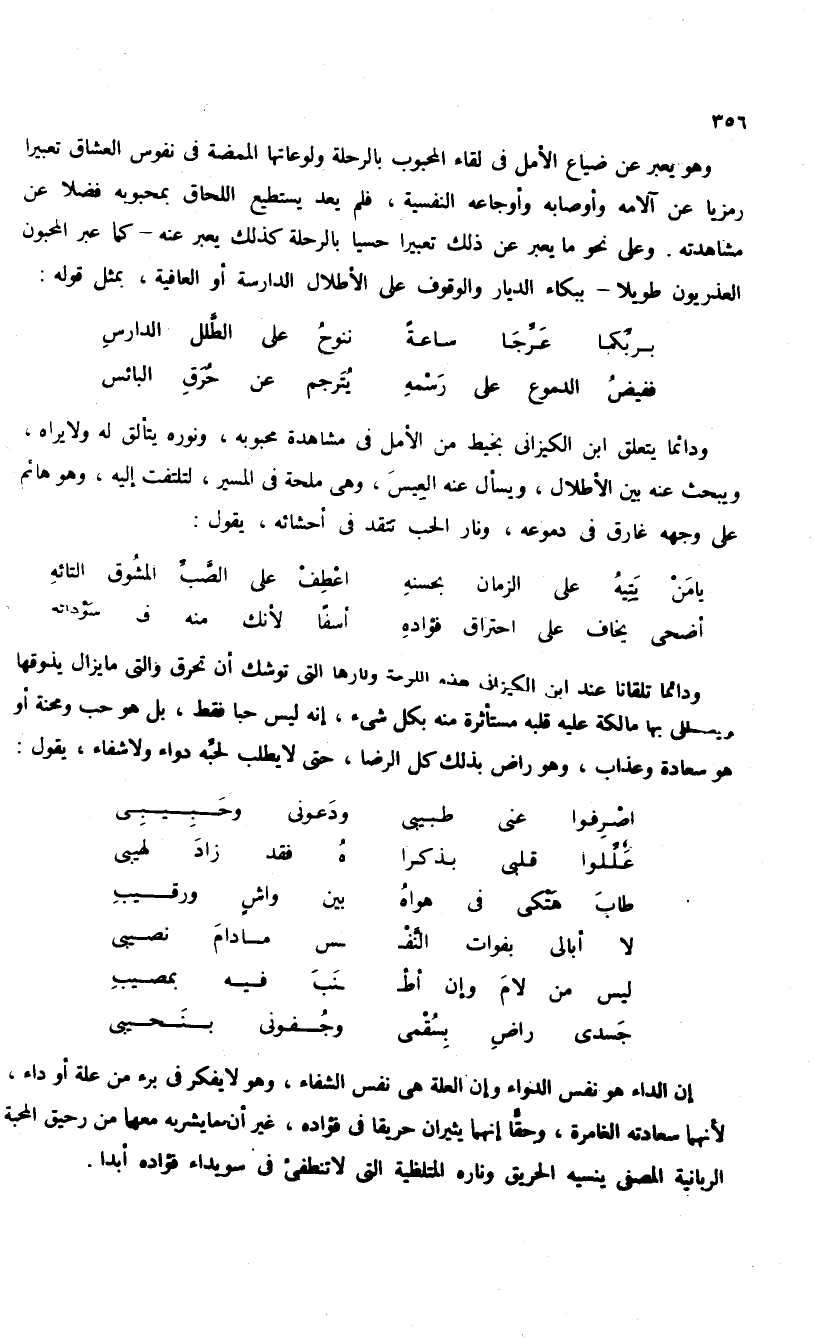 ٣٥٦
وهو يعبر عن ضياع الأمل فى لقاء المحبوب بالرحلة ولوعاتها الممضة فى نفوس العشاق تعبيرا
رمزيا عن آلامه وأوصابه وأوجاعه النفسية ، فلم يعد يستطيع اللحاق بمحبوبه فضلا عن
مشاهدته . وعلى نحو ما يعبر عن ذلك تعبيرا حسيا بالرحلة كذلك يعبر عنه – كما عبر المحبون
العذريون طويلا – ببكاء الديار والوقوف على الأطلال الدارسة أو العافية ، بمثل قوله :
بربِّكما عَرِّجَا ساعةً ننوحُ على الطَّلل الدارسِ
ففيضُ الدموع على رَسْمهِ يُتَرجم عن حُرَقِ البائس
ودائما يتعلق ابن الكيزانى بخيط من الأمل فى مشاهدة محبوبه ، ونوره يتألق له ولايراه ،
ويبحث عنه بين الأطلال ، ويسأل عنه العِيسَ ، وهى ملحة فى المسير ، لتلتفت إليه ، وهو هائم
على وجهه غارق فى دموعه ، ونار الحب تتقد فى أحشائه ، يقول :
يامَنْ يَتِيهُ على الزمان بحسنهِ اعْطِفْ على الصَّبِّ المشُوق التائهِ
أضحى يخاف على احتراق فؤادهِ أسفًا لأنك منه فى سَوْدائه
ودائما تلقانا عند ابن الكيزانى هذه اللوعة ونارها التى توشك أن تحرق والتى مايزال يذوقها
ويصطلى بها مالكة عليه قلبه مستأثرة منه بكل شىء ، إنه ليس حبا فقط ، بل هو حب ومحنة أو
هو سعادة وعذاب ، وهو راض بذلك كل الرضا ، حتى لايطلب لحبِّه دواء ولاشفاء ، يقول :
اصْرِفوا عنى طبيبى ودَعونى وحَبِيبِى
عَلِّلوا قلبى بذكرا هُ فقد زادَ لهيبى
طابَ هَتْكى فى هواهُ بين واشٍ ورقيبِ
لا أبالى بفوات النَّفْـ ـس مادامَ نصيبى
ليس من لامَ وإن أطْـ ـنَبَ فيه بمصيبِ
جَسدى راضٍ بِسُقْمى وجُفونى بنَحيبى
إن الداء هو نفس الدواء وإن العلة هى نفس الشفاء ، وهو لايفكر فى برء من علة أو داء ،
لأنهما سعادته الغامرة ، وحقًّا إنهما يثيران حريقا فى فؤاده ، غير أن مايشربه معهما من رحيق المحبة
الربانية المصفى ينسيه الحريق وناره المتلظية التى لاتنطفئ فى سويداء فؤاده أبدا .